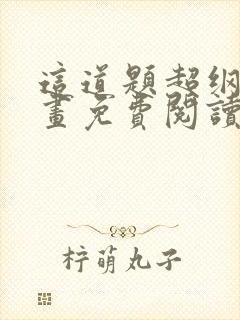 這道題超綱
畫免費閱讀
柠萌丸子